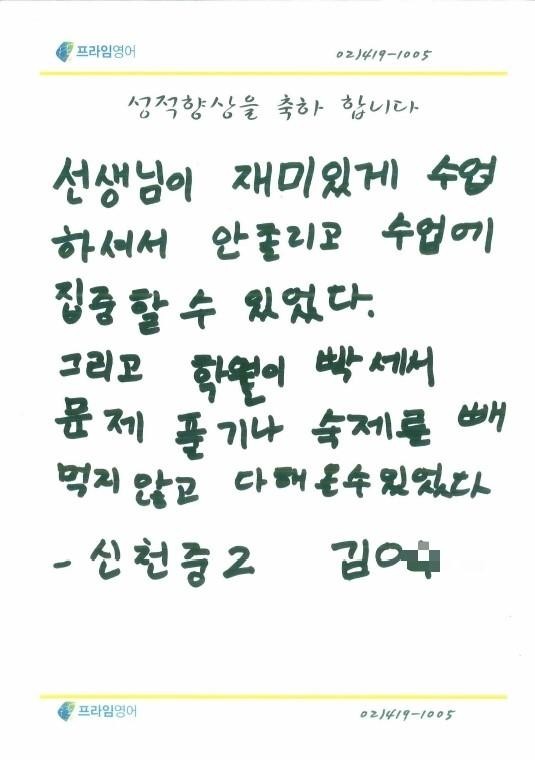 프라임영어 02)419-1005
성적향상을 축하 합니다
선생님이 재미있게 수업
하셔서 안졸리고 수업에
집중할 수 있었다.
그리고 학원이 빡세서
문제 풀기나 숙제를 빼
먹지 않고 다해 올수 있었다
- 신천중2 김
프라임영어 02)419-1005